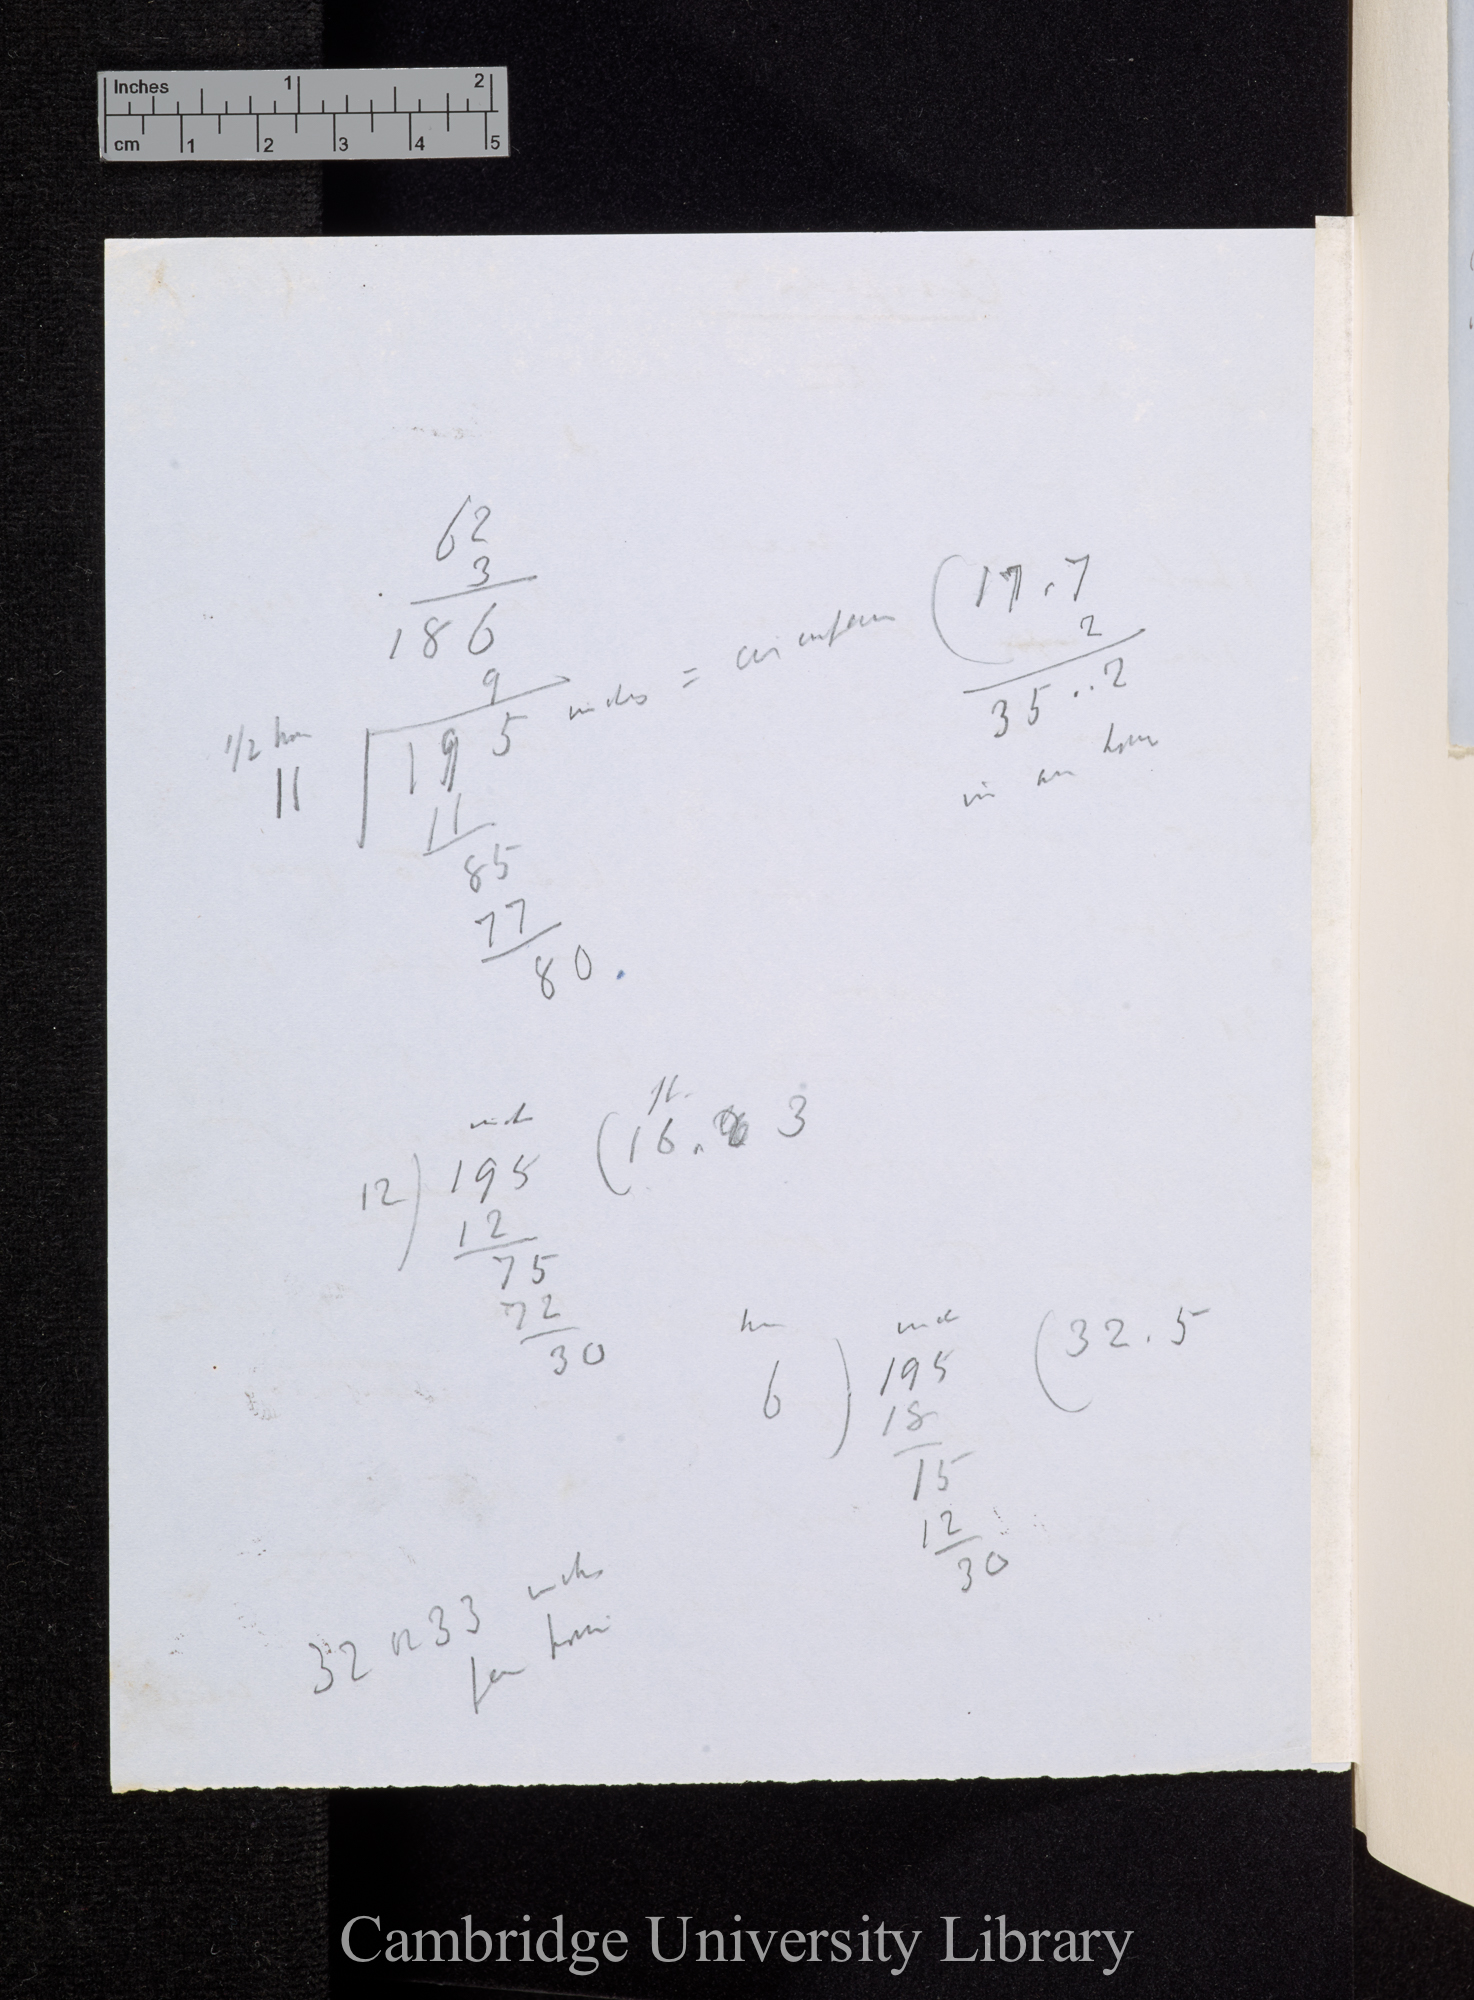 Inches 1 2
cm 1 2 3 4 5
62
3
186
9
1/2 hour
11 195 inches = circumference (17.7
2
35..2
in an hour
11
85
77
80.
inch ft.
12) 195 (16.3
12
75
72
30
hour inch
6) 195 (32.5
18
15
12
30
32 or 33 inches
per hour
Cambridge University Library